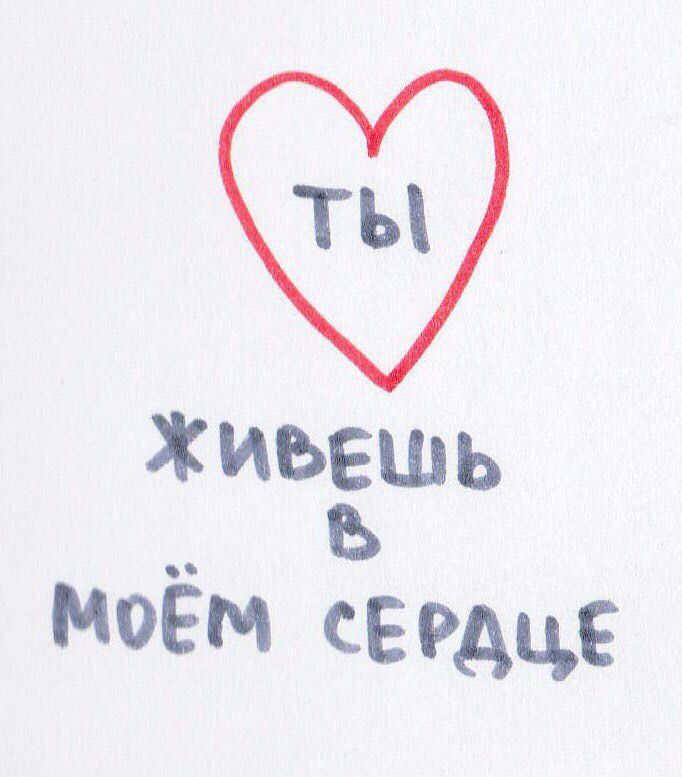 ТЫ
ЖИВЕШЬ
В
МОЁМ СЕРДЦЕ